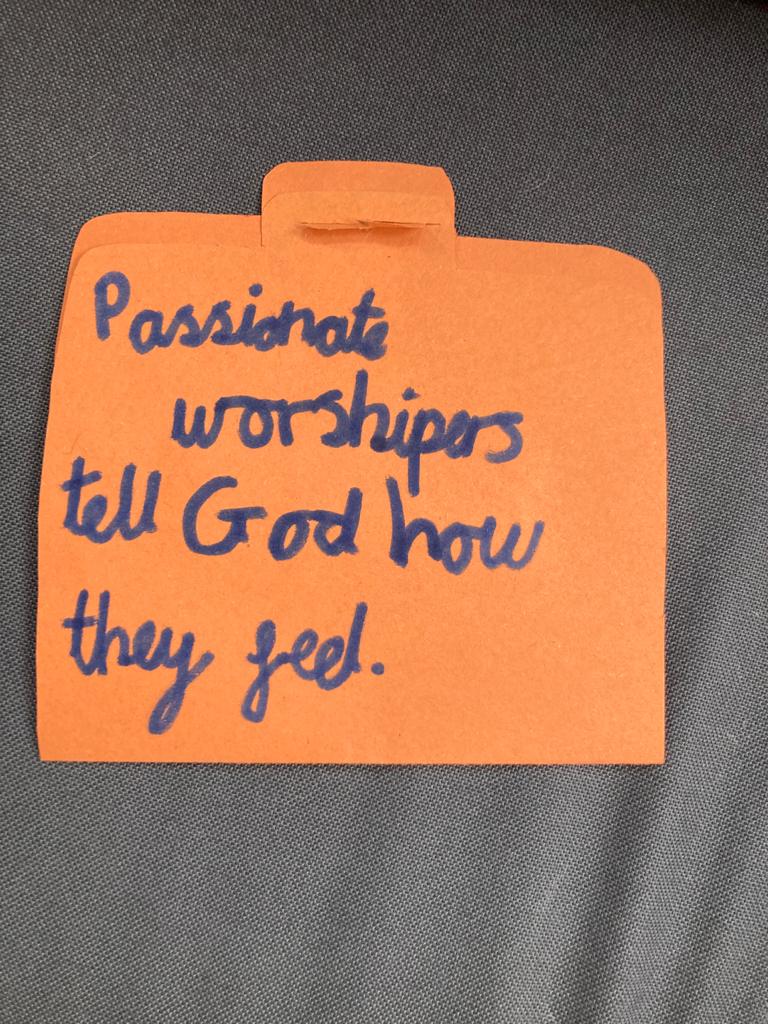 Passionate
worshipers
tell God how
they feel.